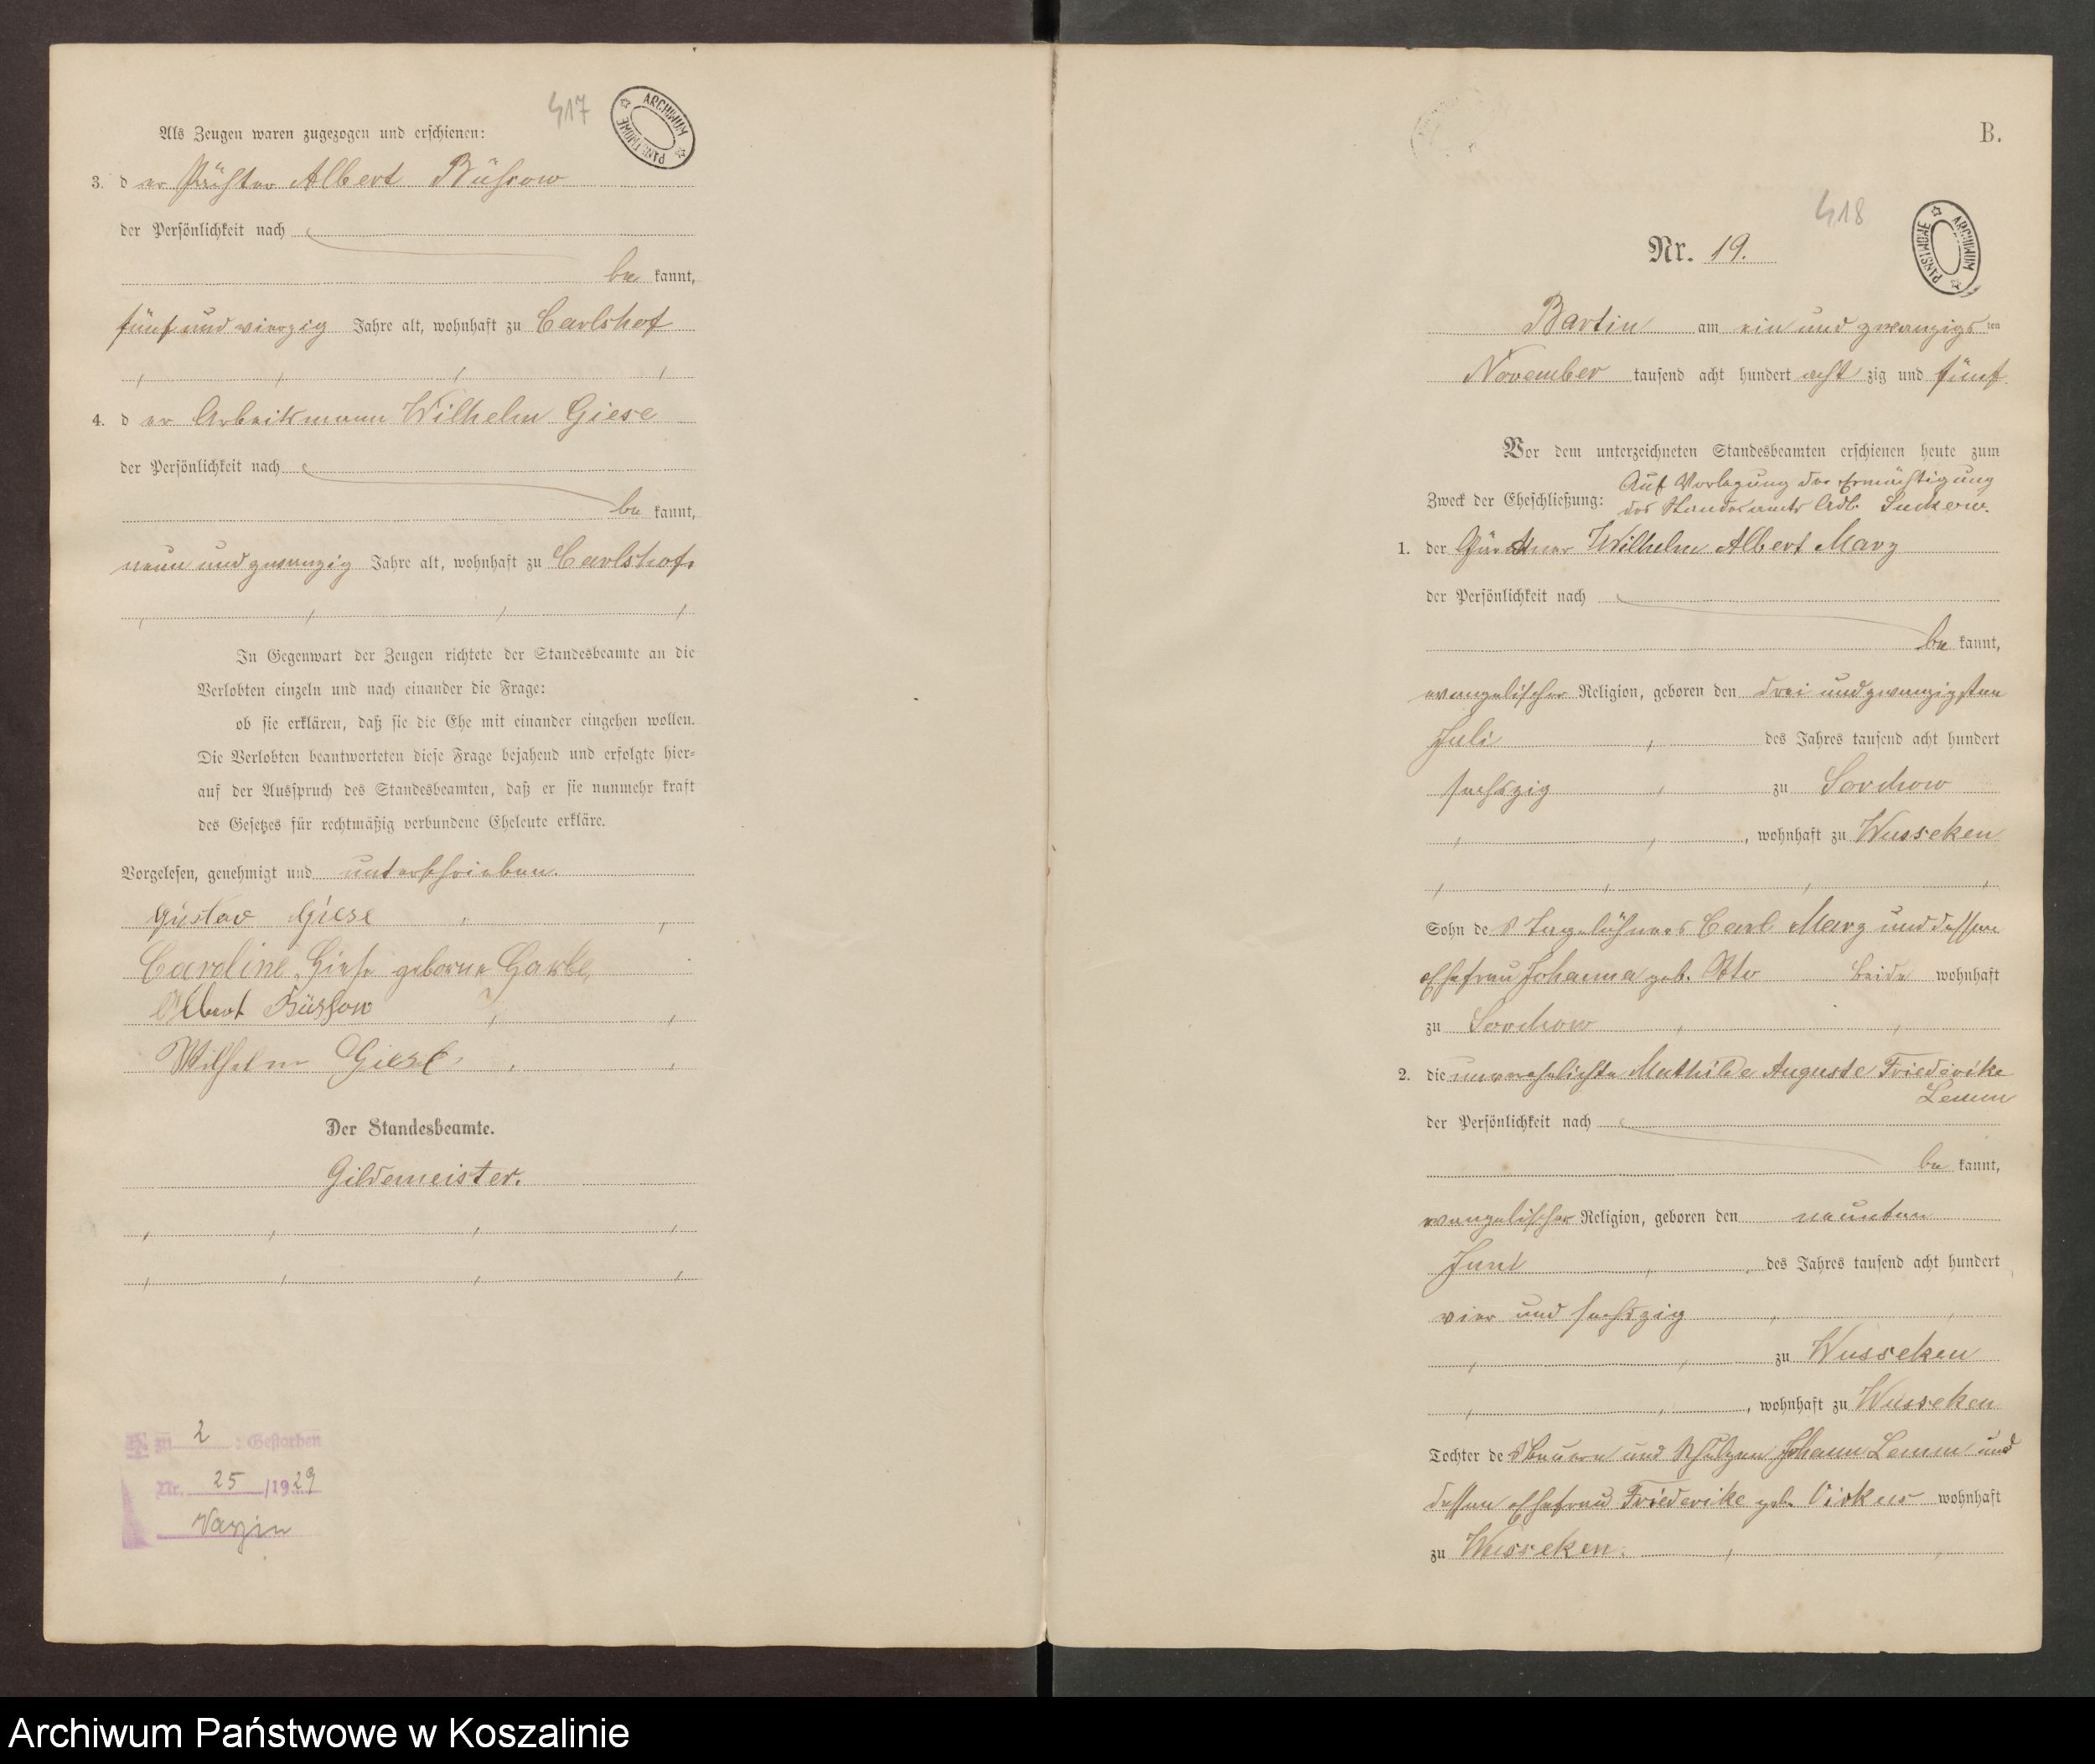 417
ARCHIWUM PAŃSTWOWE
Als Zeugen waren zugezogen und erschienen:
3. der Pächter Albert Büssow
der Persönlichkeit nach
be kannt,
fünf und vierzig Jahre alt, wohnhaft zu Carlshof
4. der Arbeitsmann Wilhelm Giese
der Persönlichkeit nach
be kannt,
neun und zwanzig Jahre alt, wohnhaft zu Carlshof.
In Gegenwart der Zeugen richtete der Standesbeamte an die
Verlobten einzeln und nach einander die Frage:
ob sie erklären, daß sie die Ehe mit einander eingehen wollen.
Die Verlobten beantworteten diese Frage bejahend und erfolgte hier-
auf der Ausspruch des Standesbeamten, daß er sie nunmehr kraft
des Gesetzes für rechtmäßig verbundene Eheleute erkläre.
Vorgelesen, genehmigt und unterschrieben.
Gustav Giese
Caroline Giese geborne Garbe,
Albert Büssow
Wilhelm Giese
Der Standesbeamte.
Gildemeister.
H. zu 2 : Gestorben
Nr. 25 /1929
Varzin
B.
418
ARCHIWUM PAŃSTWOWE
Nr. 19.
Bartin am ein und zwanzigs ten
November tausend acht hundert acht zig und fünf.
Vor dem unterzeichneten Standesbeamten erschienen heute zum
Zweck der Eheschließung: Auf Vorlegung der Ermächtigung
des Standesamts Adl. Suckow.
1. der Gärtner Wilhelm Albert Marz
der Persönlichkeit nach
be kannt,
evangelischer Religion, geboren den drei und zwanzigsten
Juli des Jahres tausend acht hundert
sechszig zu Sorchow
, wohnhaft zu Wusseken
Sohn des Tagelöhners Carl Marz und dessen
Ehefrau Johanna geb. beide wohnhaft
zu Sorchow
2. die unverehelichte Mathilde Auguste Friederike
Lemm
der Persönlichkeit nach
be kannt,
evangelischer Religion, geboren den neunten
Juni des Jahres tausend acht hundert
vier und sechszig
zu Wusseken
, wohnhaft zu Wusseken
Tochter des Bauern und Schulzen Johann Lemm und
dessen Ehefrau Friederike geb. Virkus wohnhaft
zu Wusseken.
Archiwum Państwowe w Koszalinie